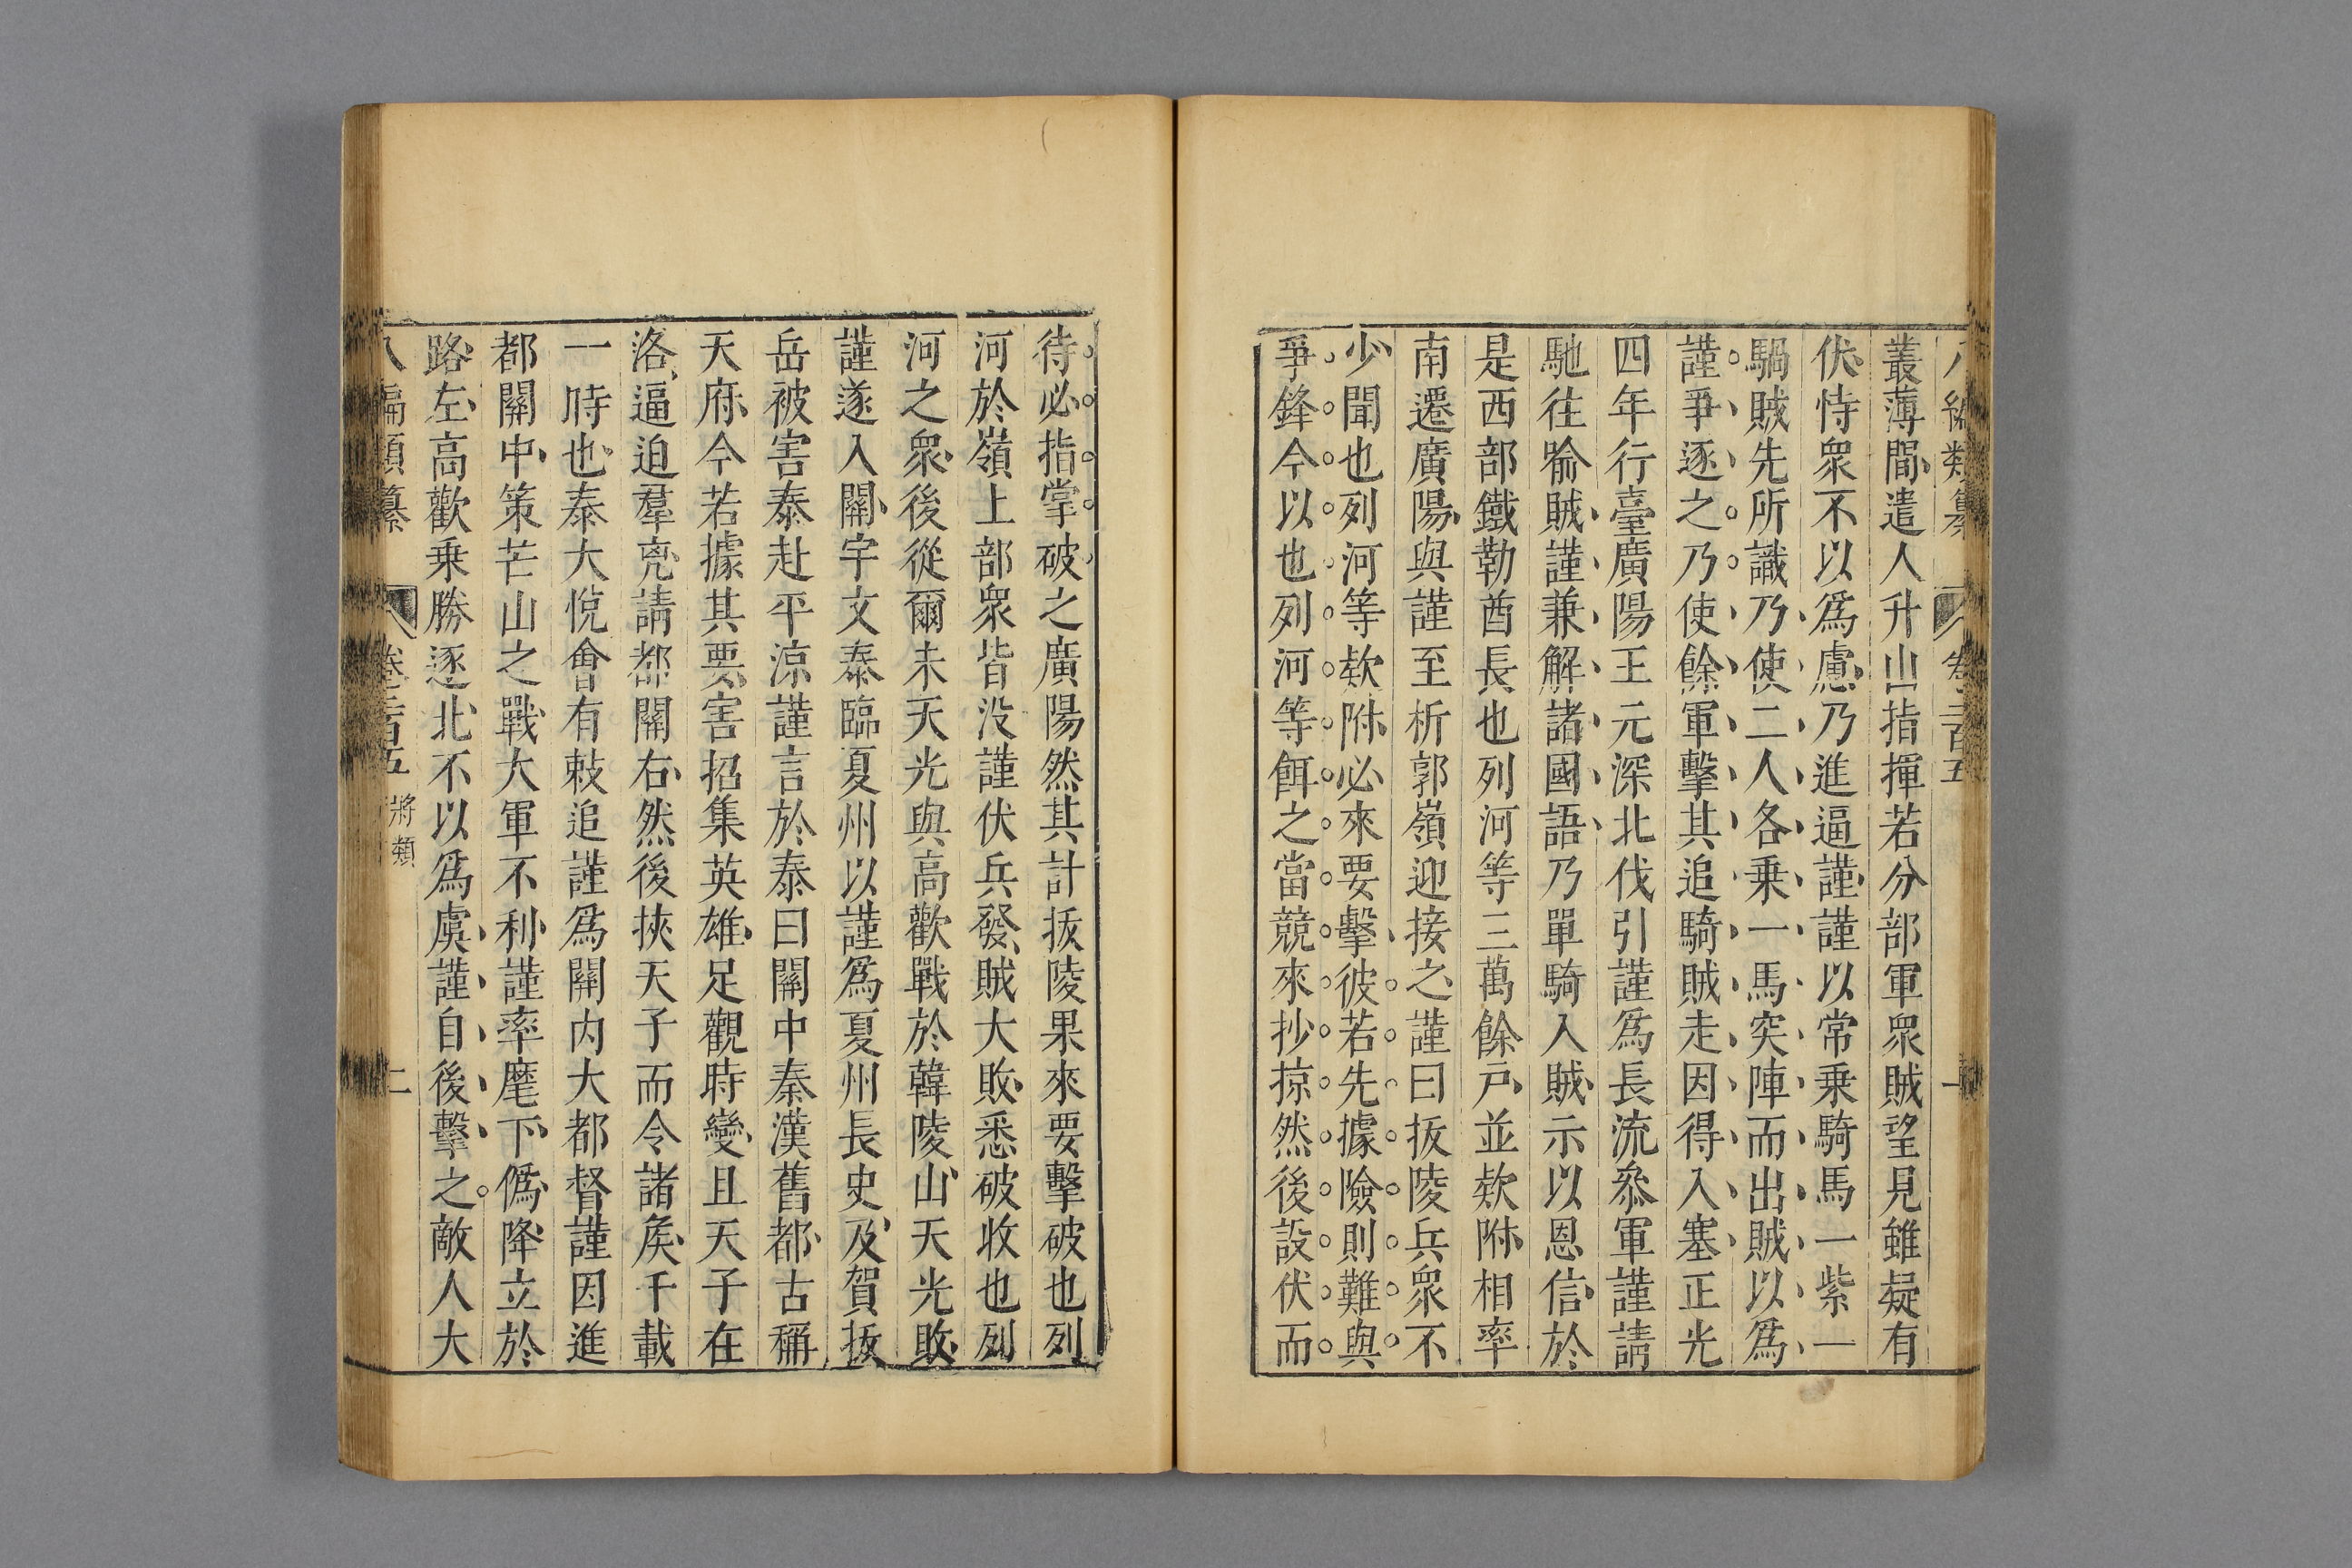 叢薄間遣人升山指揮若分部軍衆賊望見雖疑有
伏恃衆不以爲慮乃進逼謹謹以常乗騎馬一紫一
騧賊先所識乃使二人各乗一馬突陣而出賊以爲
謹爭逐之乃使餘軍擊其追騎賊走因得入塞正光
四年行臺廣陽王元深北伐引謹爲長流叅軍謹請
馳往喻賊謹兼解諸國語乃單騎入賊示以恩信於
是西部鐵勒酋長也列河等三萬餘戸並欵附相率
南遷廣陽與謹至析郭嶺迎接之謹曰抜陵兵衆不
少聞也列河等欵附必來要擊彼若先據險則難與
爭鋒今以也列河等餌之當競來抄掠然後設伏而
待必指掌破之廣陽然其計抜陵果來要擊破也列
河於嶺上部衆皆没謹伏兵發賊大敗悉破收也列
河之衆後從爾朱天光與高歡戰於韓陵山天光敗
謹遂入關宇文泰臨夏州以謹爲夏州長史及賀抜
岳被害泰赴平涼謹言於泰曰關中秦漢舊都古稱
天府今若據其要害招集英雄足觀時變且天子在
洛逼迫羣兇請都關右然後挾天子而令諸侯千載
一時也泰大悅會有敕追謹爲關内大都督謹因進
都關中策芒山之戰大軍不利謹率麾下僞降立於
路左高歡乗勝逐北不以爲虞謹自後擊之敵人大
八編類纂 卷二百五 將類 二